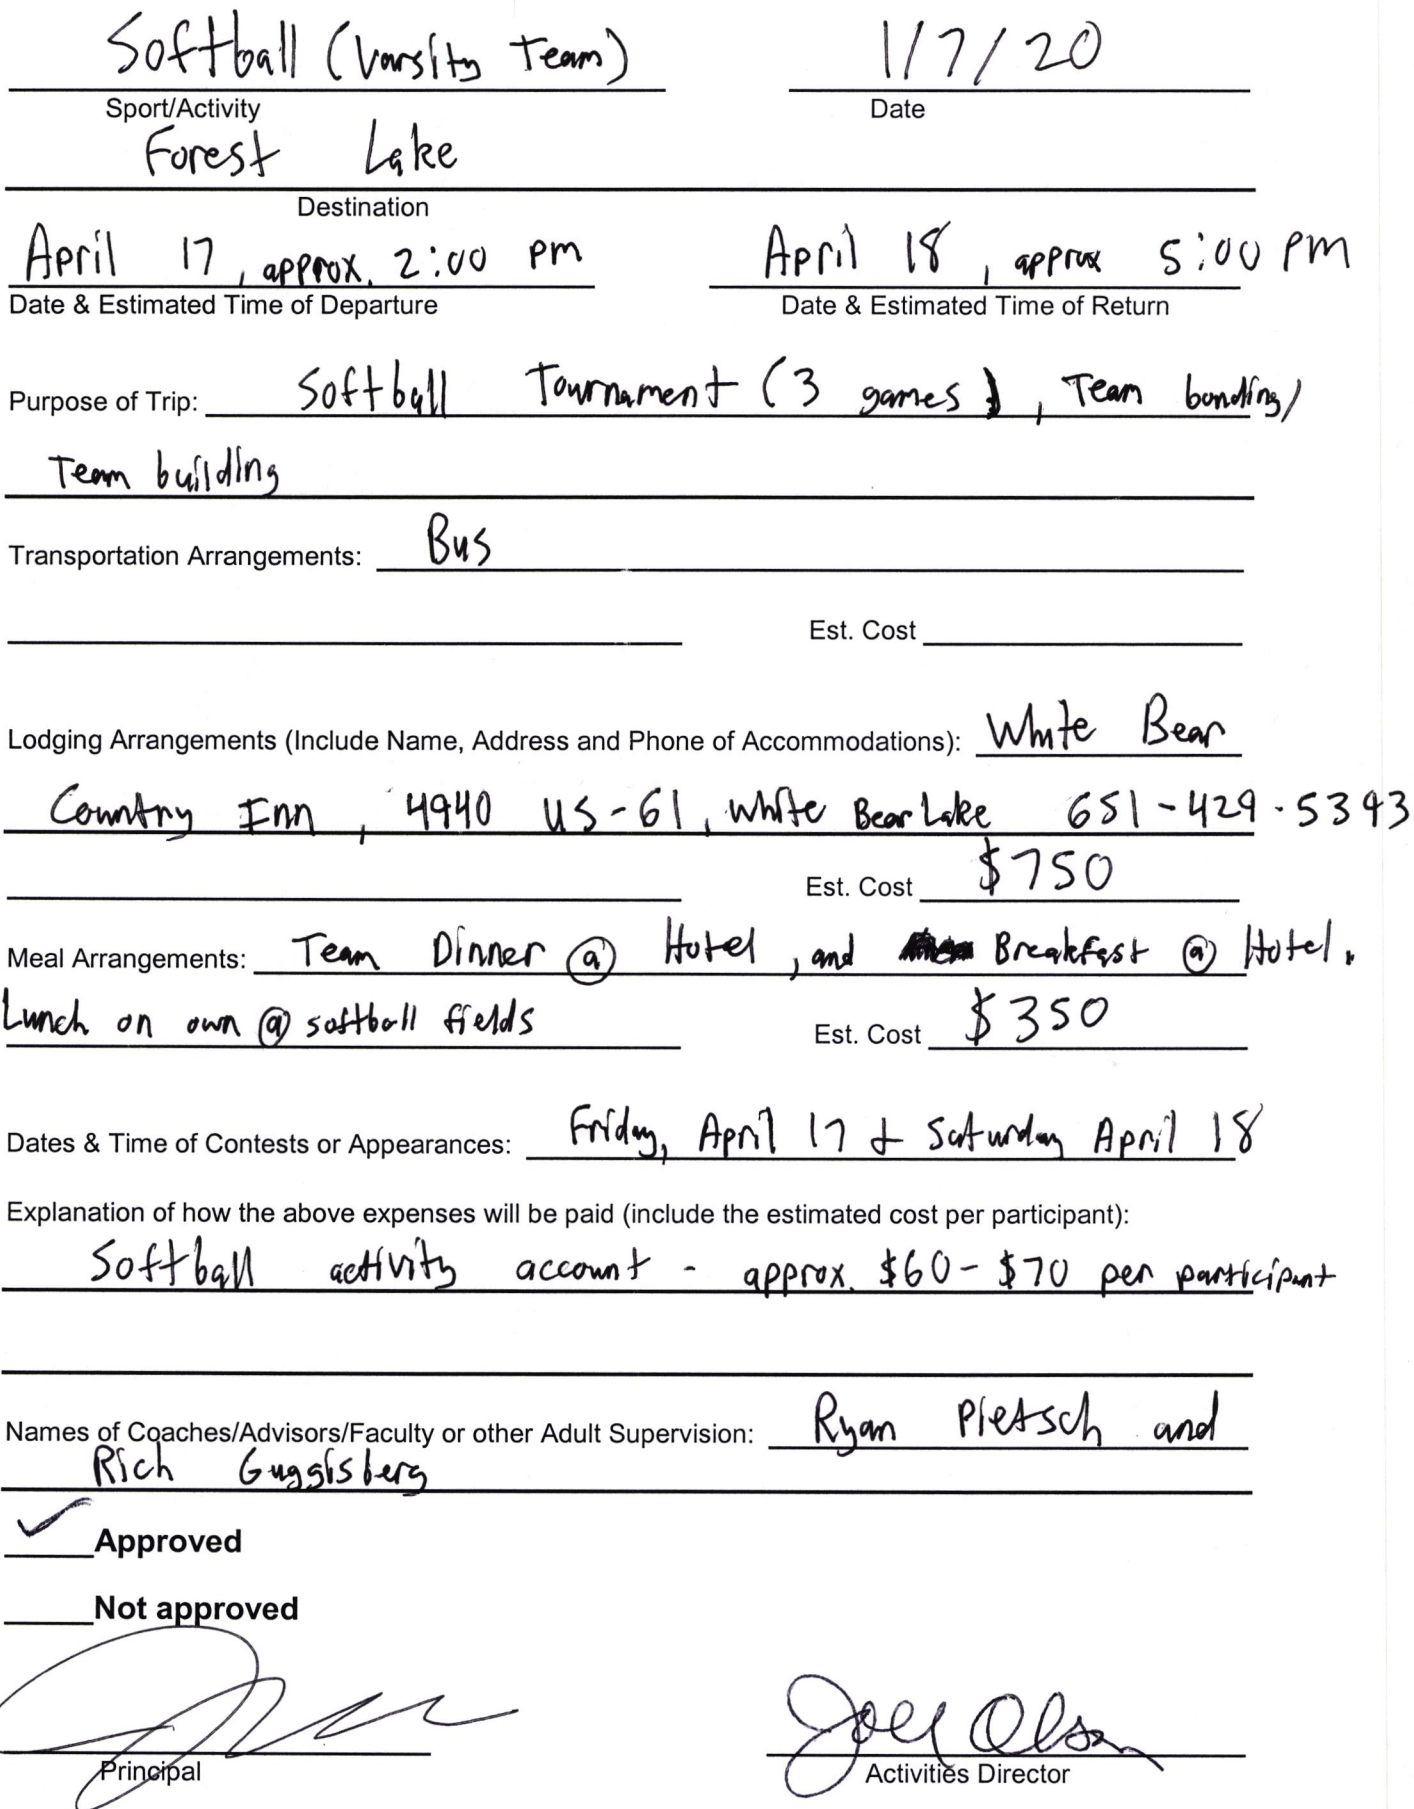 Softball (Varsity Team) 1/7/20
Sport/Activity Date
Forest Lake
Destination
April 17, approx. 2:00 pm April 18, approx 5:00 PM
Date & Estimated Time of Departure Date & Estimated Time of Return
Purpose of Trip: Softball Tournament (3 games), Team bonding/
Team building
Transportation Arrangements: Bus
Est. Cost
Lodging Arrangements (Include Name, Address and Phone of Accommodations): White Bear
Country Inn, 4940 US-61, White Bear Lake 651-429-5393
Est. Cost $750
Meal Arrangements: Team Dinner @ Hotel, and Breakfast @ Hotel.
Lunch on own @ softball fields Est. Cost $350
Dates & Time of Contests or Appearances: Friday, April 17 + Saturday April 18
Explanation of how the above expenses will be paid (include the estimated cost per participant):
Softball activity account - approx. $60-$70 per participant
Names of Coaches/Advisors/Faculty or other Adult Supervision: Ryan Pietsch and
Rich Guggisberg
✓ Approved
Not approved
Joel Olson
Principal Activities Director